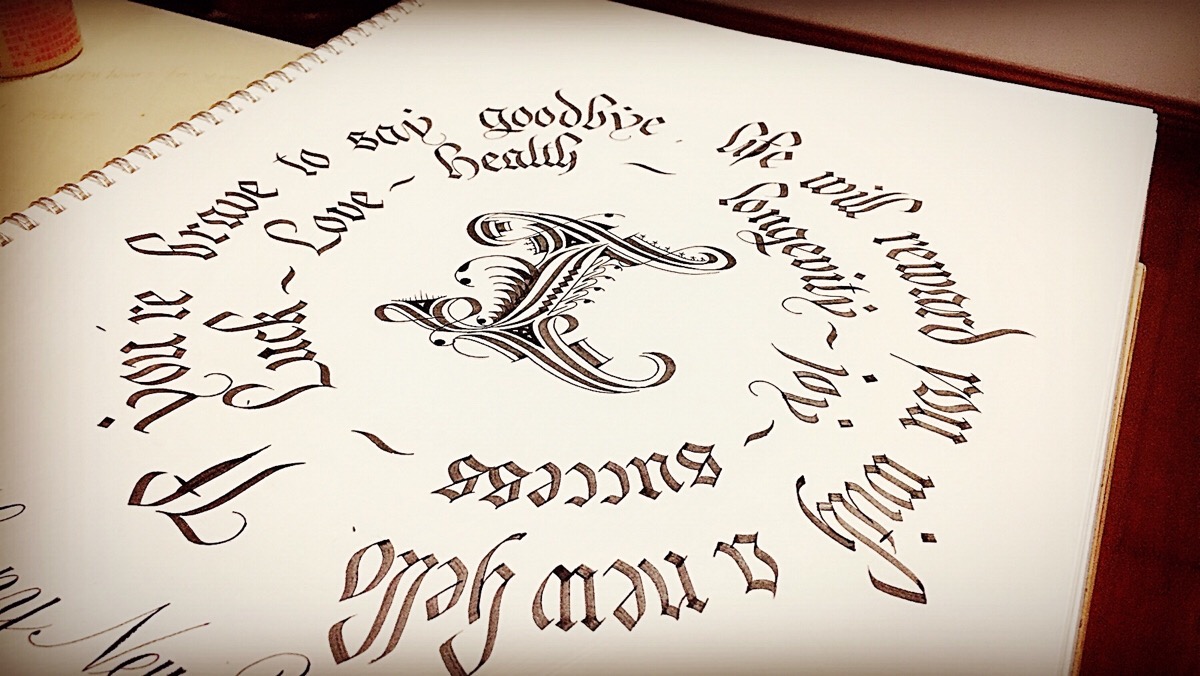 If you're brave to say goodbye life will reward you with a new hello
Luck ~ Love ~ health ~ longevity ~ Joy ~ success ~
New